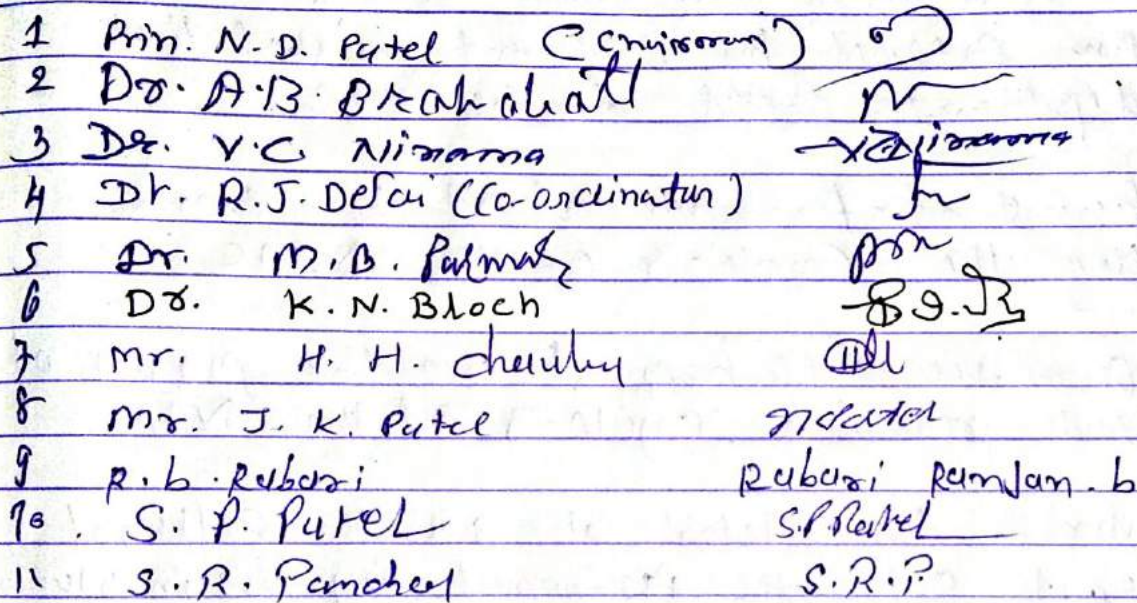 1 Prin. N. D. Patel (Chairman)
2 Dr. A. B. Brahmbhatt
3 Dr. V. C. Ninama
4 Dr. R. J. Desai (Co-ordinator)
5 Dr. M. B. Parmar
6 Dr. K. N. Bloch
7 Mr. H. H.
8 Mr. J. K. Patel
9 R. b. Rabari Rabari Ramjan. b
10. S. P. Patel S.P. Patel
11 S. R. Panchal S. R. P.